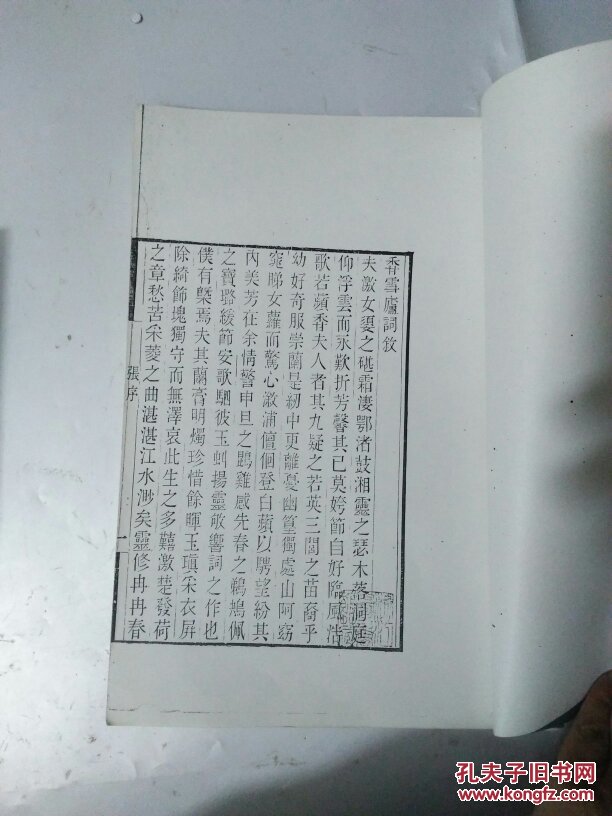 香雪廬詞敘
夫激女嬃之碪霜淒鄂渚鼓湘靈之瑟木落洞庭
仰浮雲而永歎折芳馨其已莫姱節自好臨風浩
歌若蘋香夫人者其九疑之若英三閭之苗裔乎
幼好奇服崇蘭是紉中更離憂幽篁獨處山阿窈
窕睇女蘿而驚心漵浦儃佪登白蘋以騁望紛其
內美芳在余情警申旦之鵾雞感先春之鵜鴂佩
之寶璐緩節安歌駟彼玉虬揚靈敂響詞之作也
僕有槩焉夫其蘭膏明燭珍惜餘暉玉瑱采衣屏
除綺飾塊獨守而無澤哀此生之多囏激楚發荷
之章愁苦采菱之曲湛湛江水渺矣靈修冉冉春
張序
一
孔夫子旧书网
www.kongfz.com